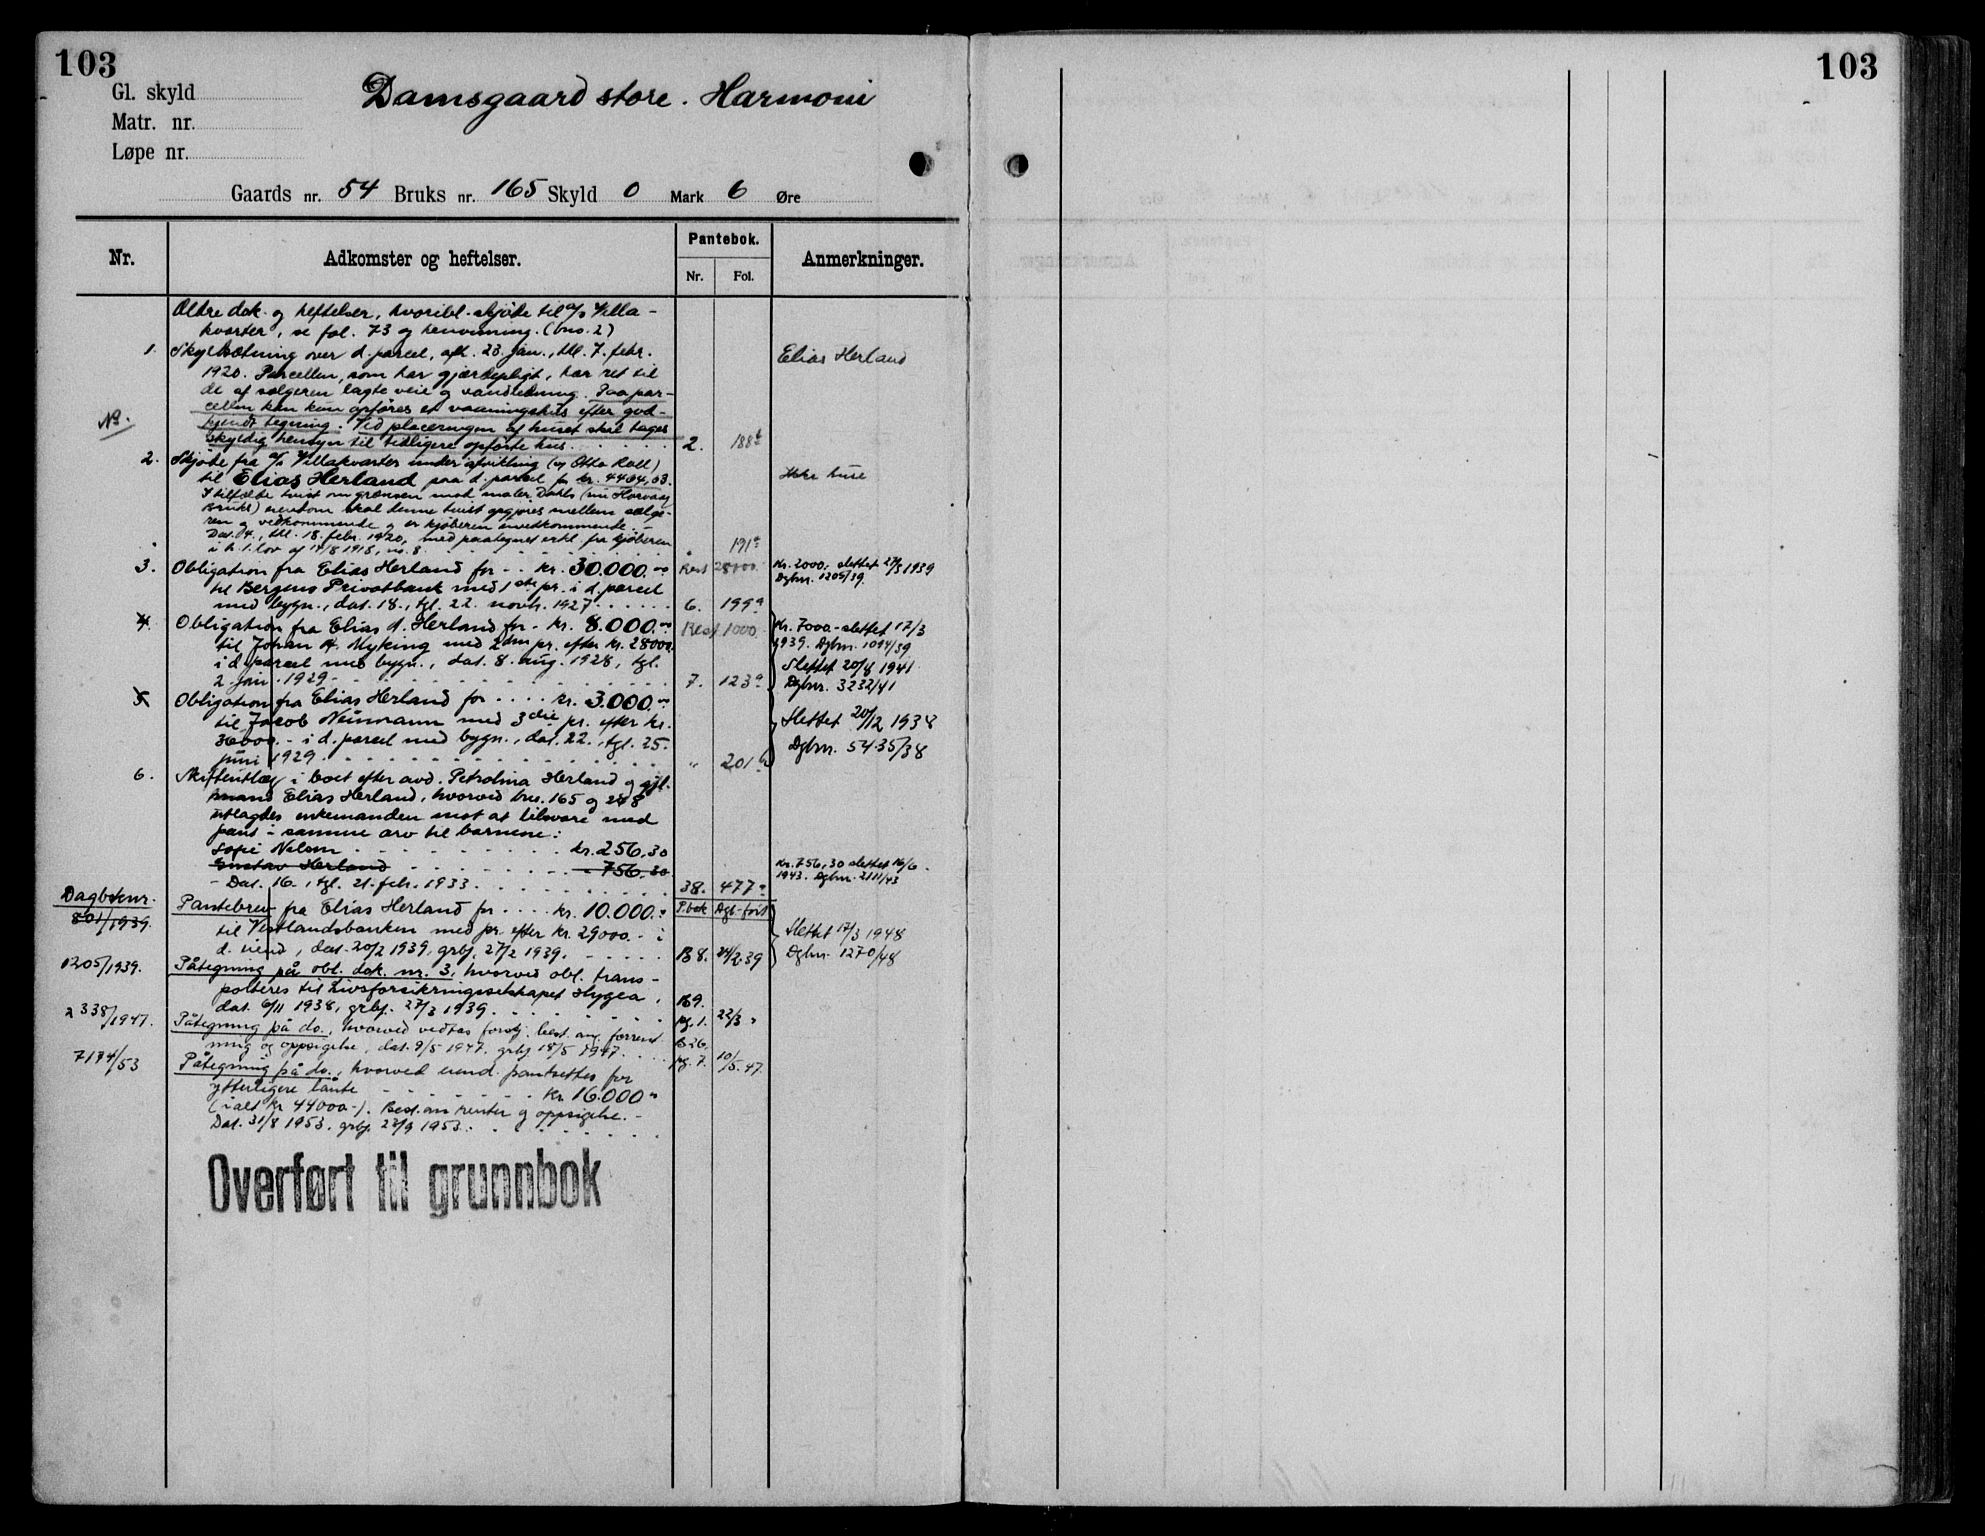 103
103
Gl. skyld
Damsgaard store. Harmoni
Matr. nr.
Løpe nr.
Gaards nr. 54 Bruks nr. 165 Skyld 0 Mark 6 Øre
Nr. Adkomster og heftelser. Pantebok. Anmerkninger.
Nr. Fol.
Ældre dok. og heftelser, hvoribl. skjøte til a/s Villa-
kvarter, se fol. 73 og henvisning. (bno. 2)
1. Skyldsætning over d. parcel, afh. 23. jan., tll. 7. febr. Elias Herland
1920. Parcellen, som har gjærdepligt, har ret til
de af sælgeren lagte veie og vandledning. Paa par-
cellen kan kun opføres et vaaningshus efter god-
NB. kjendt tegning. Ved placeringen af huset skal tages
skyldig hensyn til tidligere opførte hus. 2. 188b
2. Skjøte fra a/s Villakvarter under afvikling (v/ Otto Roll)
til Elias Herland paa d. parcel for kr. 4404,03. Ikke huse
I tilfælde tvist om grænsen mod maler Dahls (nu
Bruks) eiendom skal denne tvist opgjøres mellem sælge-
ren og vedkommende og er kjøberen uvedkommende. -
Dat. 14., tll. 18. febr. 1920, med paategnet erkl. fra kjøberen
i h. t. lov af 14/8 1918, no. 8. " 191a
3. Obligation fra Elias Herland for - - kr. 30.000.00 Rest 28000. Kr. 2000,- slettet 27/3 1939
til Bergens Privatbank med 1ste pr. i d. parcel Dgbnr. 1205/39.
med bygn., dat. 18., tgl. 22. novbr. 1927 6. 199a
4. Obligation fra Elias d. Herland for - kr. 8.000.00 Rest 1000 Kr. 7000.- slettet 17/3
til Johan A. Myking med 2den pr. efter kr. 28000 1939. Dgbnr. 1094/39
i d. parcel med bygn., dat. 8. aug. 1928, tgl. Slettet 20/8 1941
2. jan. 1929 7. 123a Dgbnr. 3232/41
5. Obligation fra Elias Herland for - - - - kr. 3.000.00
til Jacob Neumann med 3die pr. efter kr. Slettet 20/12 1938
36000.- i d. parcel med bygn., dat. 22., tgl. 25. Dgbnr. 5435/38
juni 1929 " 201b
6. Skifteutlæg i boet efter avd. Petrolina Herland og gjl.
mand Elias Herland, hvorved bnr. 165 og 248
utlagdes enkemanden mot at tilsvare med
pant i samme arv til barnene:
Sofie Nilsen kr. 256,30
Gustav Herland - 756,30 Kr. 756,30 slettet 16/6
- Dat. 16., tgl. 21. feb. 1933. 38. 477a 1943. Dgbnr. 2111/43
Dagboknr.
801/1939. Pantebrev fra Elias Herland for - - - - kr. 10.000.- P.bok Dgb-ført
til Vestlandsbanken med pr. efter kr. 29000.- i Slettet 17/3 1948
d. eiend., dat. 20/2 1939, grbf. 27/2 1939. B8. 24/2.39 Dgbnr. 1270/48
1205/1939. Påtegning på obl. dok. nr. 3, hvorved obl. trans-
porteres til Livsforsikringsselskapet Hygea, B9.
dat. 6/11 1938, grbf. 27/3 1939. pg. 1. 22/3 "
2338/1947. Påtegning på do., hvorved vedtas forskj. best. ang. forrent-
ning og oppsigelse, dat. 9/5 1947. grbf 18/5 1947. B26. pg. 7. 10/5.47
7174/53 Påtegning på do., hvorved eiend. pantsettes for
ytterligere lånte kr. 16.000.-
(ialt kr 44000.-). Best. om renter og oppsigelse. -
Dat. 31/8 1953. grbf. 23/9 1953.
Overført til grunnbok